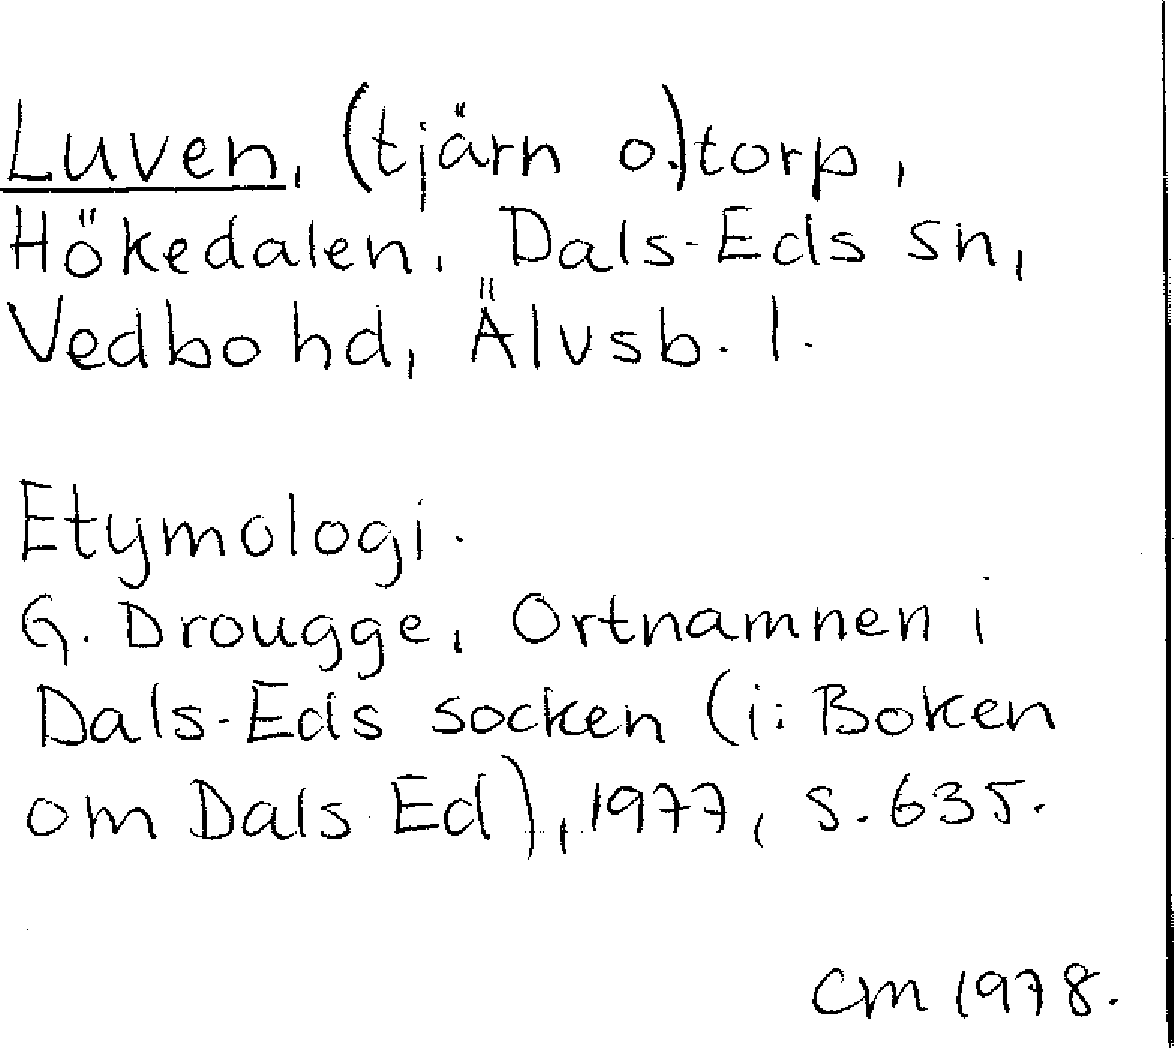 Luven, (tjärn o.)torp,
Hökedalen, Dals-Eds sn,
Vedbo hd, Älvsb. l.
Etymologi.
G. Drougge, Ortnamnen i
Dals-Eds socken (i: Boken
om Dals Ed), 1977, s. 635.
CM 1978.